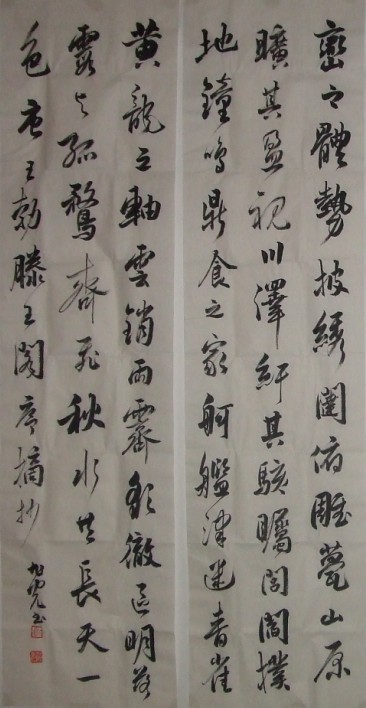 峦之體勢披绣闥俯雕甍山原
曠其盈视川澤紆其駭矚閭閻撲
地鐘鳴鼎食之家舸艦津迷青雀
黄龍之軸雲銷雨霽彩徹區明落
霞与孤鶩齊飛秋水共長天一
色唐王勃滕王阁序摘抄